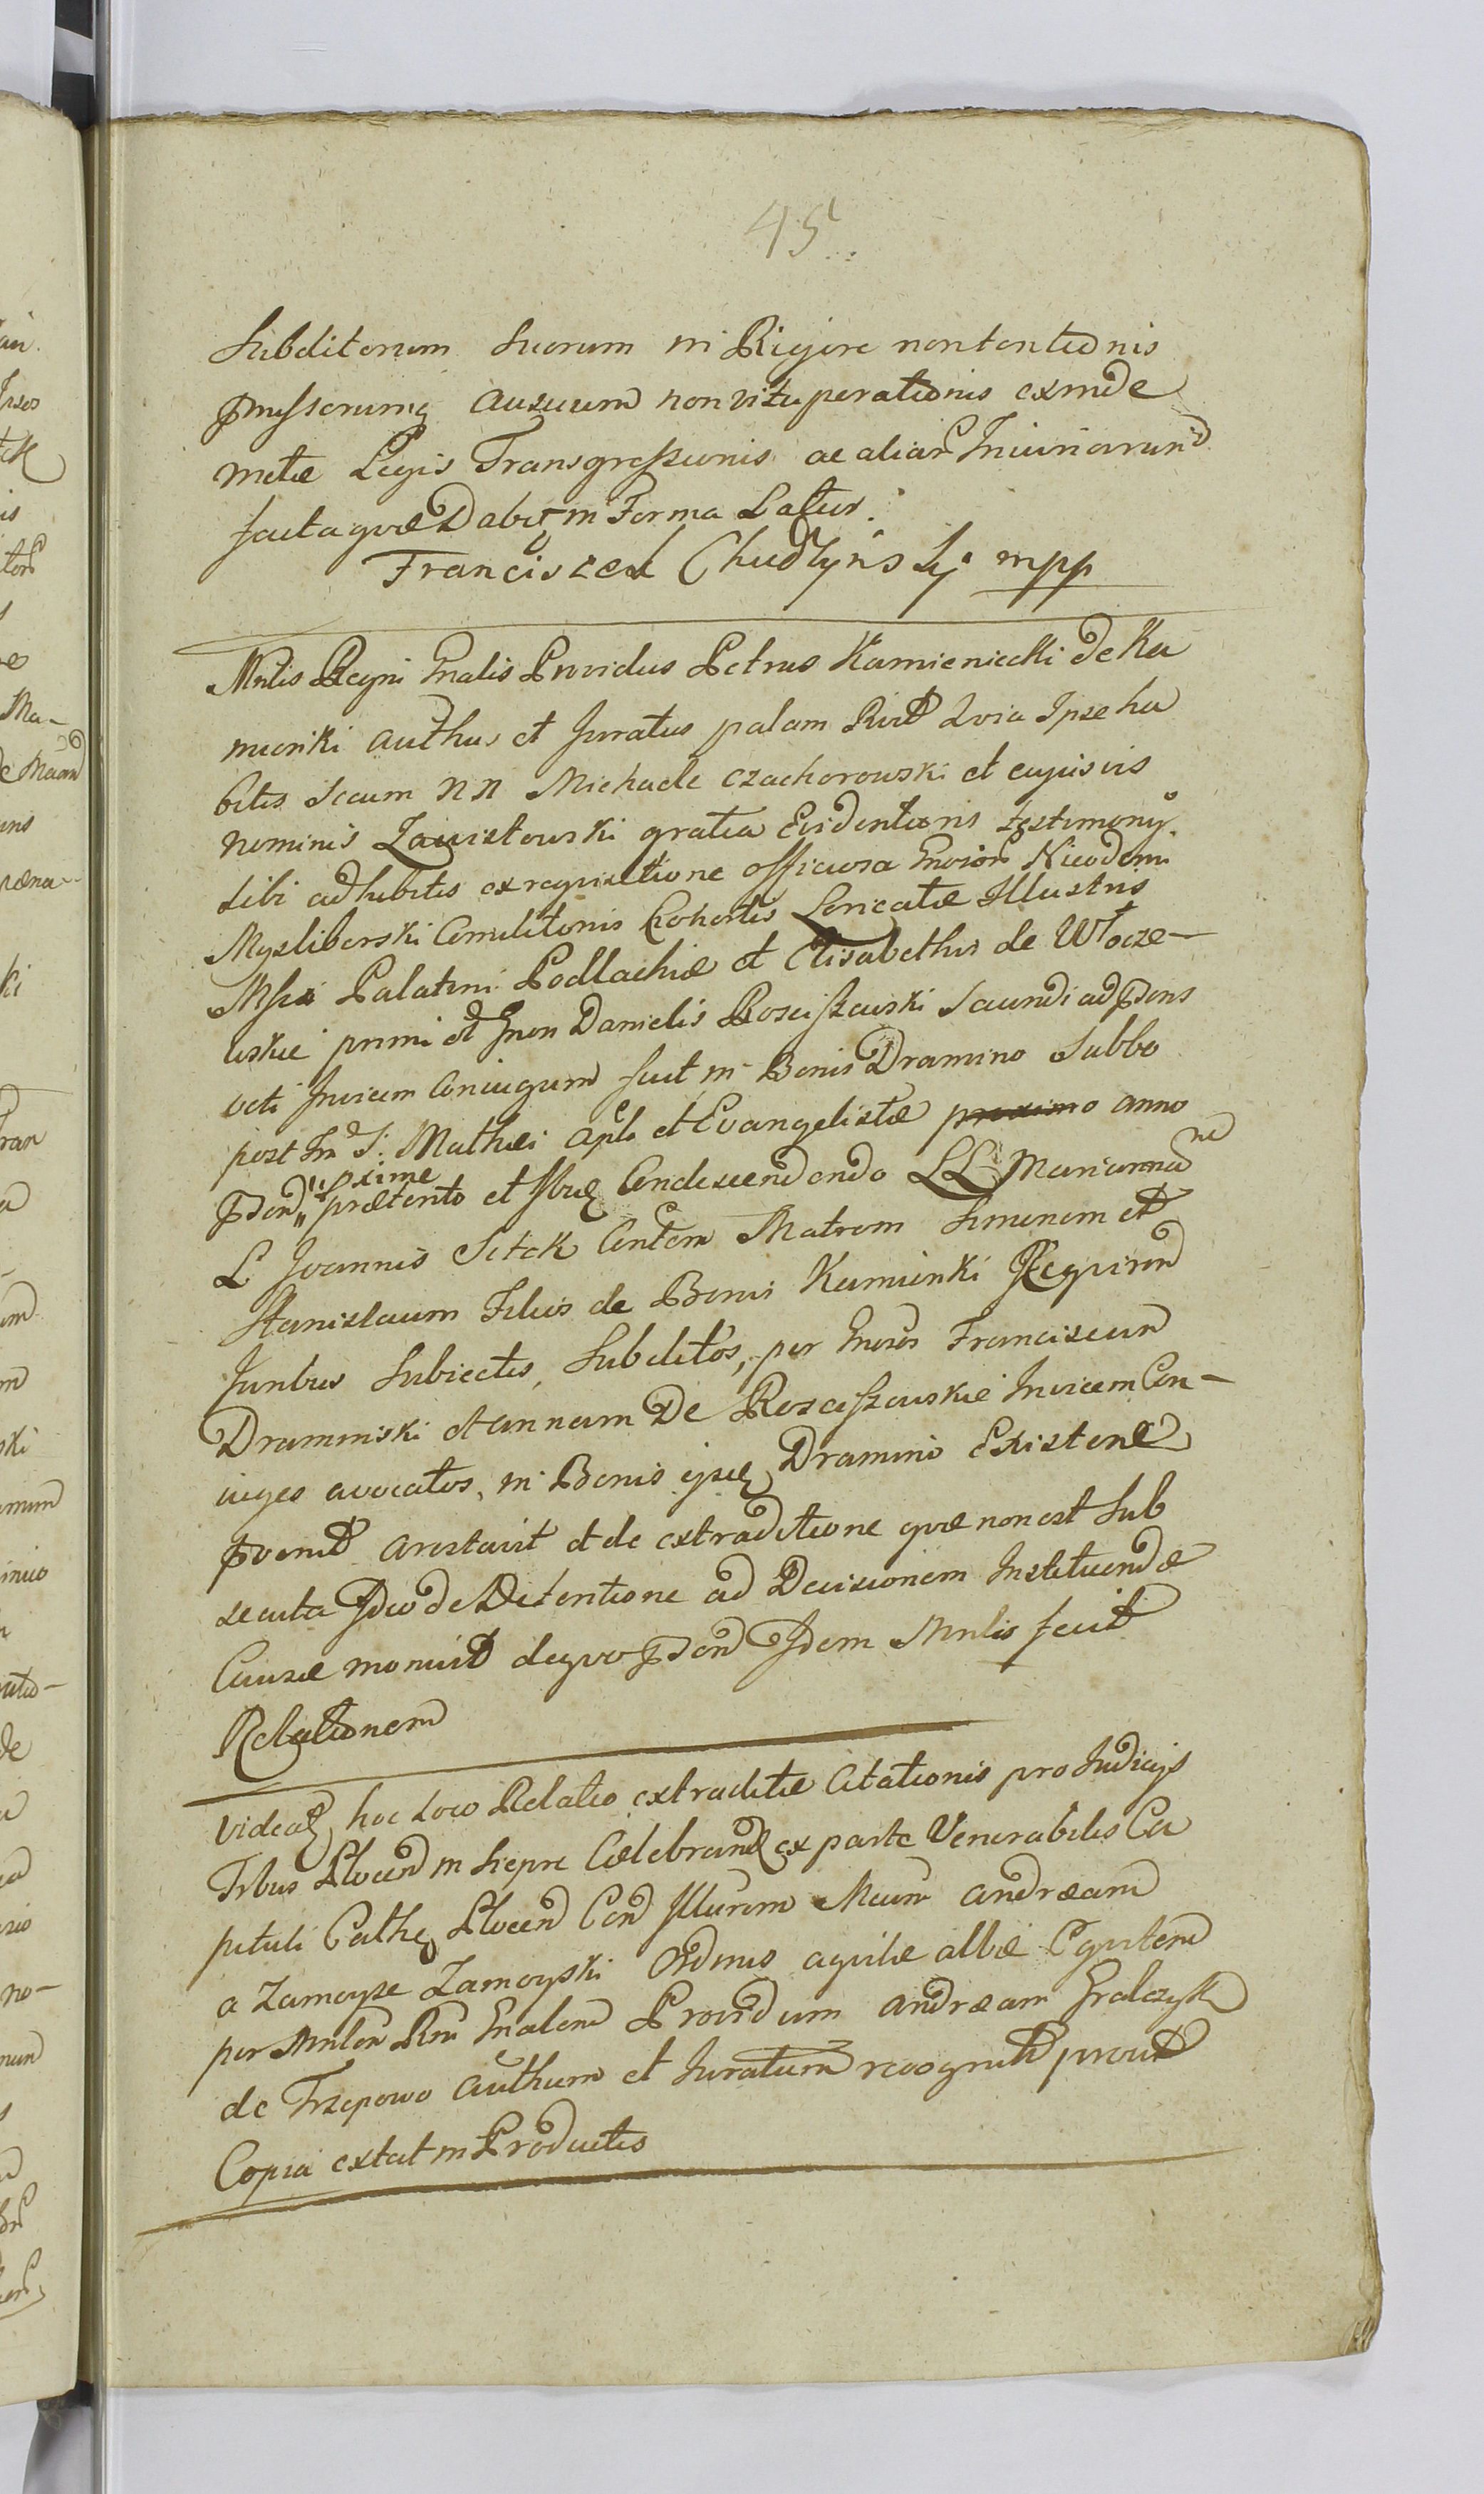 45
Subditorum suorum in Rigore nontentionis
pmissorumq ausuum non vituperationis exinde
metæ Legis Transgressionis ac aliar Iniuriarum
facta quæ Dabit in Forma Latius.
Franciszek Chudzyński mpp
Mnlis Regni Gnalis Providus Petrus Kamieniecki de Ka
mionki authus et Juratus palam Rvit Quia Ipse ha
bitis secum NN Michaele Czachorowski et cujusvis
nominis Zawistowski gratia Evidentioris testimony
sibi adhibitis ex requisitione officiosa Gnosor Nicodemi
Mysliborski Comilitonis Cohortis Loricatæ Illustris
Msci Palatini Podlachiæ et Elisabethis de Włocze-
wskie primi et Gnon Danielis Rosciszewski secundi ad psens
voti Invicem Coniugum fuit in Bonis Dramino Sabbo
post Fm S: Mathei Apli et Evangelistæ proximo anno
psen " pxime præterito et ibiq Condescendendo LL Mariannam
L Joannis Sitek Contem Matrem Simonem et
Stanislaum Filios de Bonis Kamionki Requiren
Juribus Subiectis, Subditos, per Gnosos Franciscum
Draminski et annam De Rosciszewskie Invicem Con-
iuges avocatos, in Bonis ijsq Dramino Existen
pvenit arestavit et de extraditione quæ non est sub
secuta Ideo de Detentione ad Decisionem Instituendæ
Causæ monuit de quo psen Idem Mnlis fecit
Relationem
Videat hoc loco Relatio extraditæ Citationis pro Judicijs
Trbus Plocen in Siepre Celebran ex parte Venerabilis Ca
pituli Cathe Plocen Con Illurem Mcum Andream
a Zamoysc Zamoyski Ordinis aquilæ albæ Equitem
per Mnlem Rni Gnalem Providum Andream Gralczyk
de Trzepowo authum et Juratum recognit prout
Copia extat in Productis